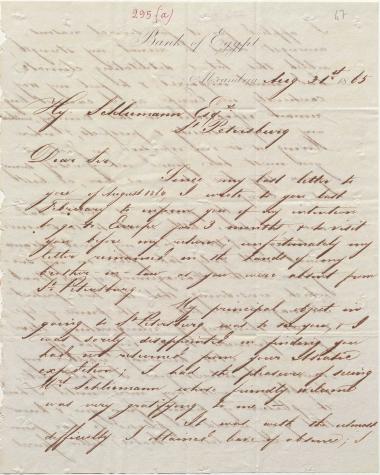 295 (a)
67
Bank of Egypt
Alexandria Aug 21st 1865
Hy. Schliemann Esqr.
St. Petersburg
Dear Sir
Since my last letter to
you of August 1864 I wrote to you last
February to inform you of my intention
to go to Europe for 3 months & to visit
you before my return; unfortunately my
letter remained in the hands of my
brother in law as you were absent from
St. Petersburg
My principal object in
going to St Petersburg was to see you, & I
was sorely disappointed in finding you
had not returned from your Asiatic
expedition; I had the pleasure of seeing
Mrs. Schliemann whose friendly welcome
was very gratifying to me.
It was with the utmost
difficulty I obtained leave of absence; I